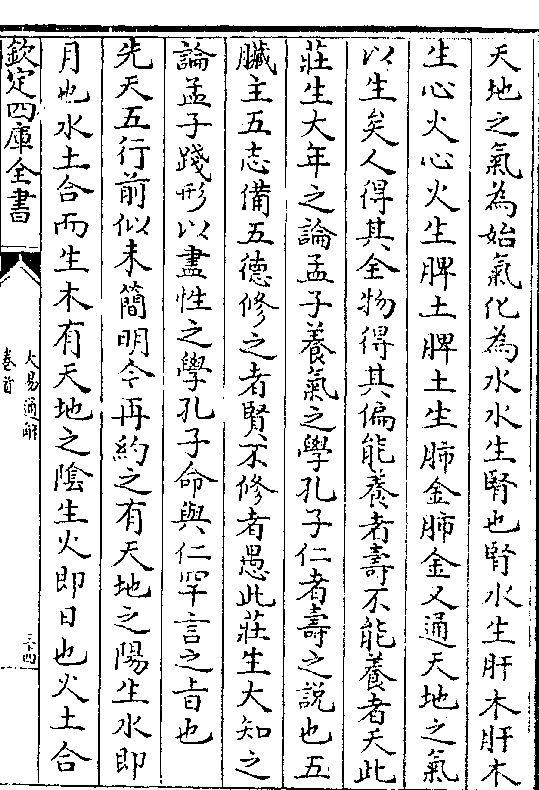 天地之氣為始氣化為水水生腎也腎水生肝木肝木
生心火心火生脾土脾土生肺金肺金又通天地之氣
以生矣人得其全物得其偏能養者壽不能養者夭此
莊生大年之論孟子養氣之學孔子仁者壽之說也五
臟主五志備五德修之者賢不修者愚此莊生大知之
論孟子踐形以盡性之學孔子命與仁罕言之旨也
先天五行前似未簡明今再約之有天地之陽生水即
月也水土合而生木有天地之陰生火即日也火土合
欽定四庫全書
大易通解
卷首
三十四